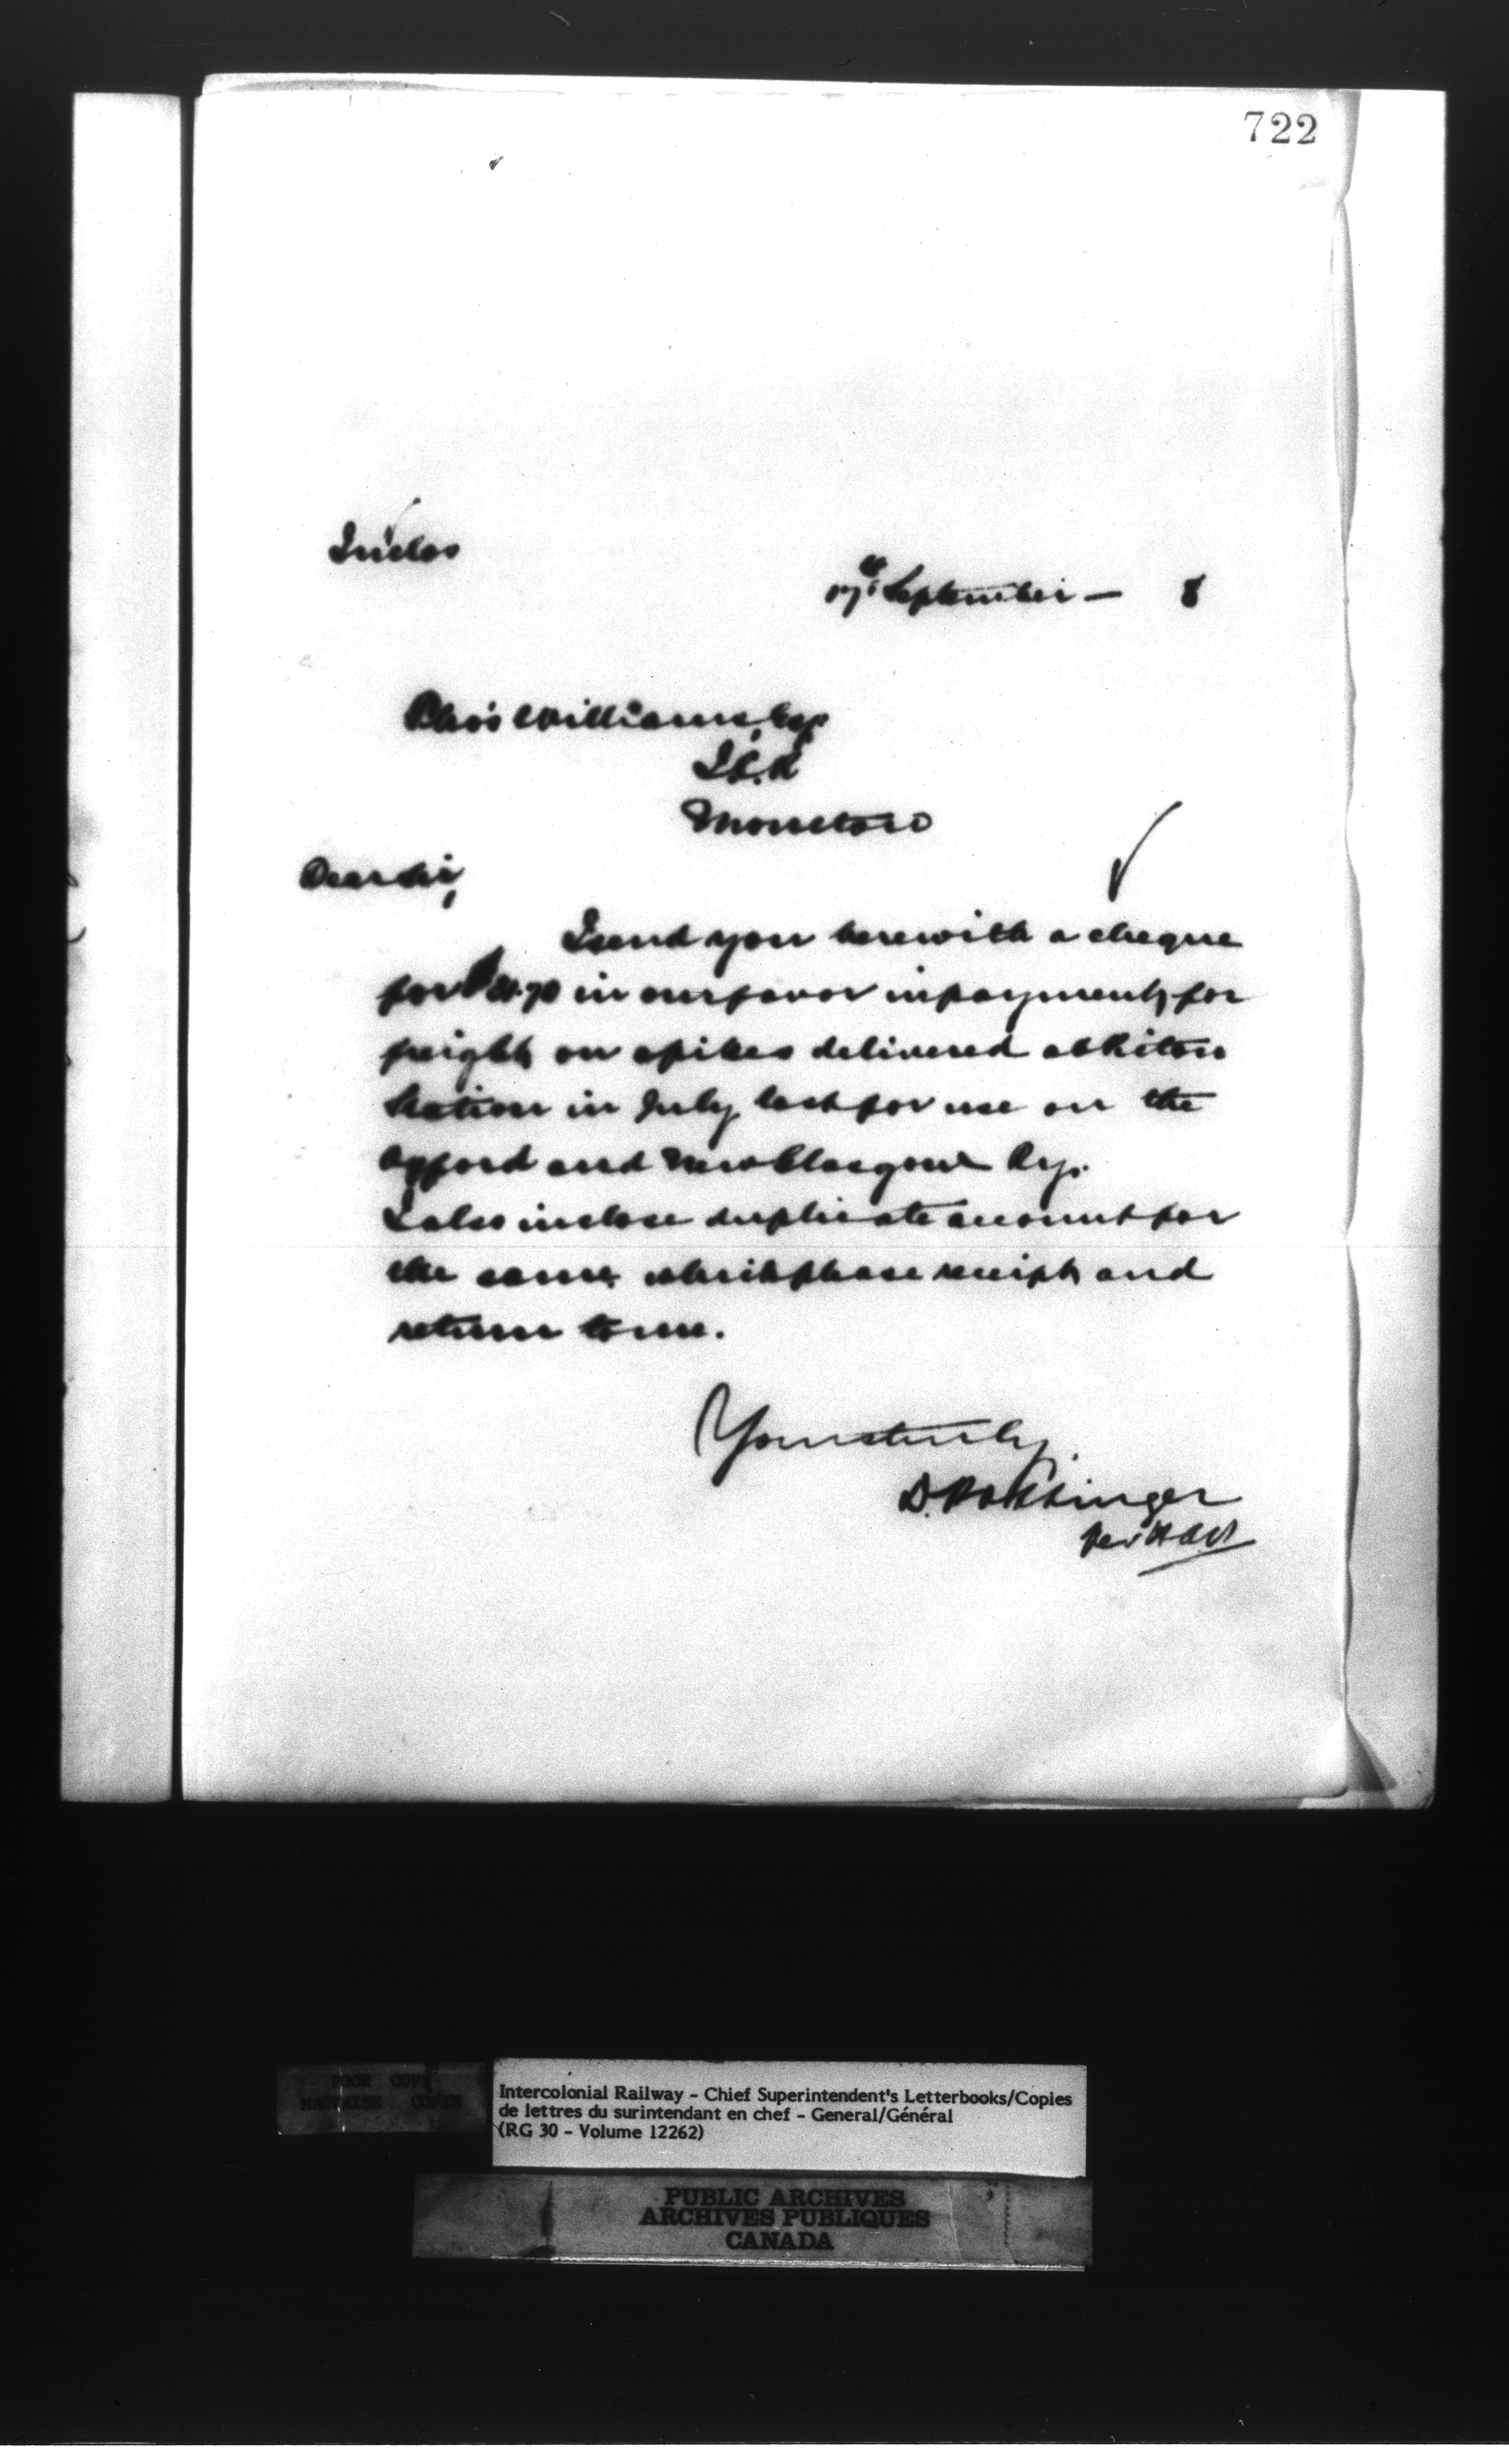 722
Inclos
17th September — 8
Thos Williams, Esq
I.C.R
Moncton
Dear Sir,
I send you herewith a cheque
for $ in our favor in payment for
freight on spikes delivered at
Station in July last for use on the
Oxford and New Glasgow Ry.
I also inclose duplicate account for
the same which please receipt and
return to me.
Yours truly,
D. Pottinger
Per
POOR COPY
MAUVAISE COPIE
Intercolonial Railway - Chief Superintendent's Letterbooks/Copies
de lettres du surintendant en chef - General/Général
(RG 30 - Volume 12262)
PUBLIC ARCHIVES
ARCHIVES PUBLIQUES
CANADA